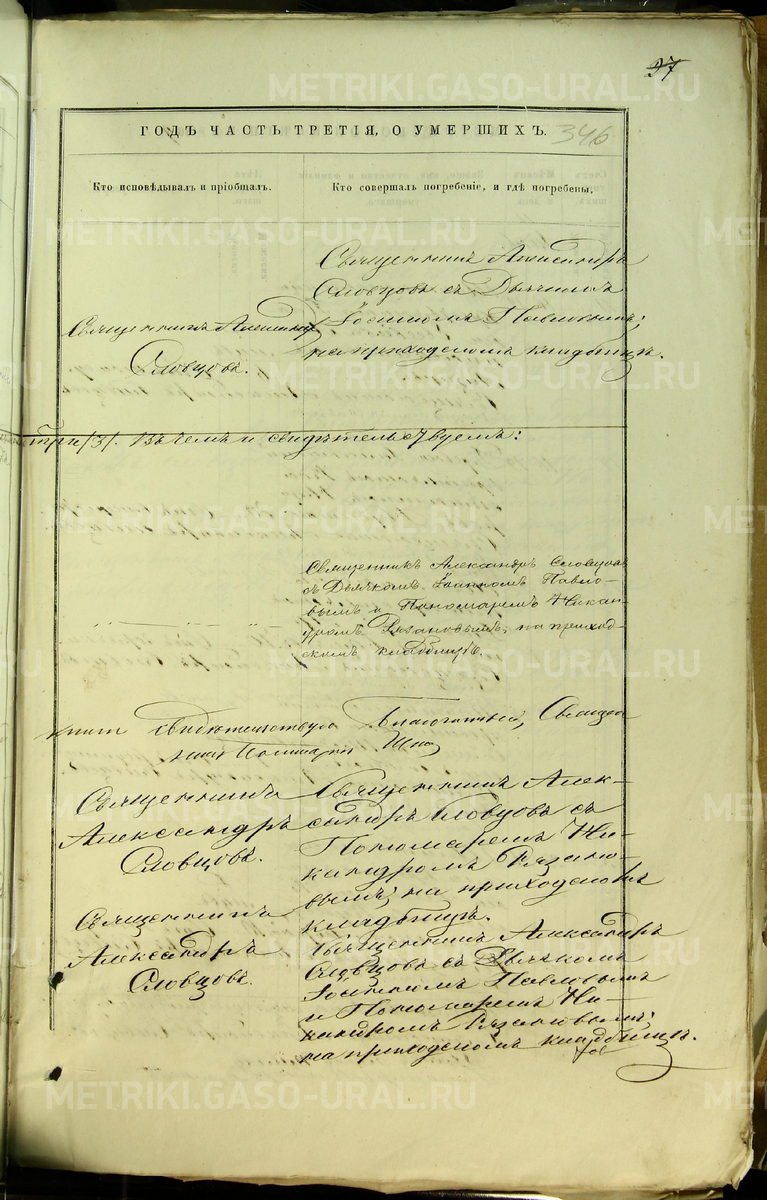 37
346
ГОДЪ ЧАСТЬ ТРЕТІЯ, О УМЕРШИХЪ.
Кто исповѣдывалъ и пріобщалъ.
Кто совершалъ погребеніе, и гдѣ погребены.
Священникъ Александръ
Словцовъ.
Священникъ Александръ
Словцовъ съ Дьячкомъ
Іоанномъ Павловымъ;
на приходскомъ кладбищѣ.
три /3/. Въ чемъ и свидѣтельствуемъ:
Священникъ Александръ Словцовъ
съ Дьячкомъ Іоанномъ Павло-
вымъ и Пономаремъ Никан-
дромъ Рязановымъ; на приход-
скомъ кладбищѣ.
книги свидѣтельствовалъ Благочинный, Священ
никъ
Священникъ
Александръ
Словцовъ.
Священникъ Алек-
сандръ Словцовъ съ
Пономаремъ Ни-
кандромъ Рязано-
вымъ; на приходскомъ
кладбищѣ.
Священникъ
Александръ
Словцовъ.
Священникъ Александръ
Словцовъ съ Дьячкомъ
Іоанномъ Павловымъ
и Пономаремъ Ни-
кандромъ Рязановымъ;
на приходскомъ кладбищѣ.
METRIKI.GASO-URAL.RU